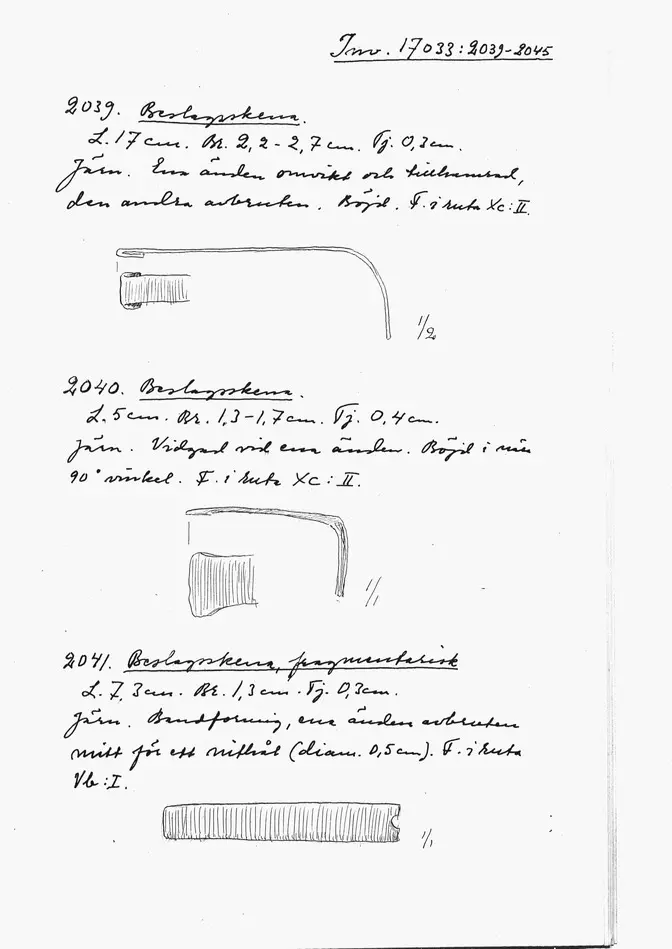 Inv. 17033:2039-2045
2039. Beslagsskena.
L. 17 cm. Br. 2,2-2,7 cm. Tj. 0,3 cm.
Järn. Ena änden omvikt och tillhamrad,
den andra avbruten. Böjd. F. i ruta Xc:II.
1/2
2040. Beslagsskena.
L. 5 cm. Br. 1,3-1,7 cm. Tj. 0,4 cm.
Järn. Vidgad vid ena änden. Böjd i nära
90° vinkel. F. i ruta Xc:II.
1/1
2041. Beslagsskena, fragmentarisk
L. 7,3 cm. Br. 1,3 cm. Tj. 0,3 cm.
Järn. Bandformig, ena änden avbruten
mitt för ett nithål (diam. 0,5 cm). F. i ruta
Vb:I.
1/1